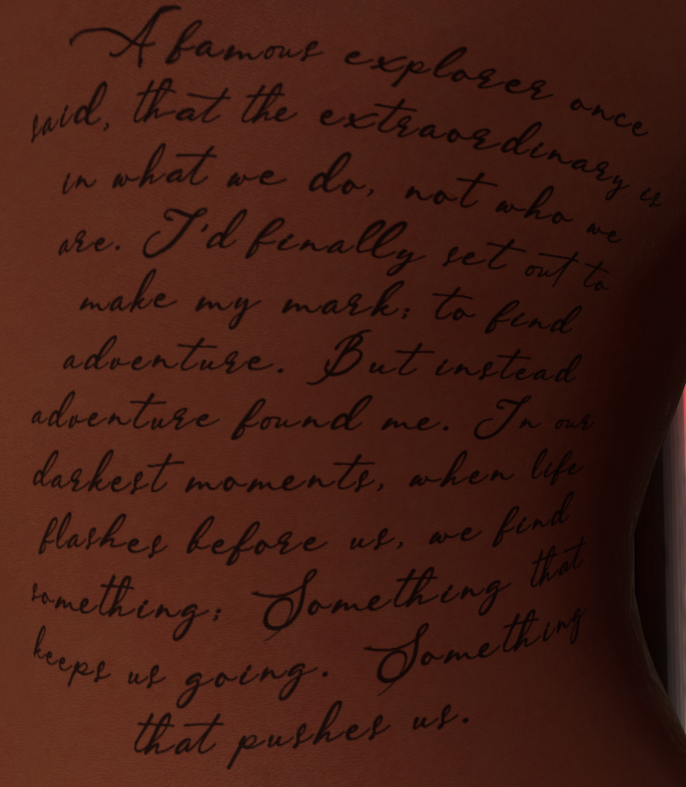 A famous explorer once
said, that the extraordinary is
in what we do, not who we
are. I'd finally set out to
make my mark; to find
adventure. But instead
adventure found me. In our
darkest moments, when life
flashes before us, we find
something; Something that
keeps us going. Something
that pushes us.